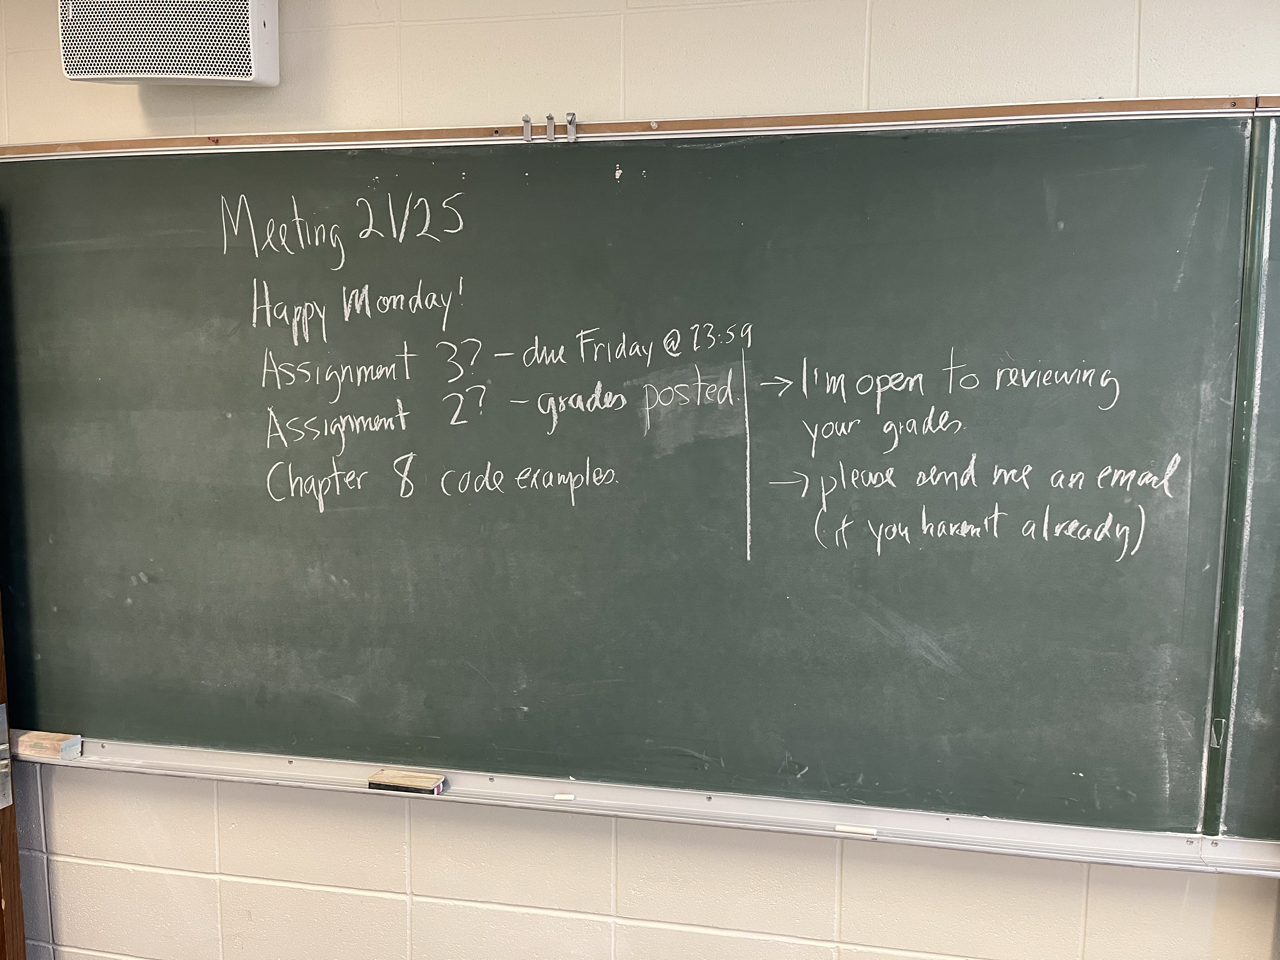 Meeting 21/25
Happy Monday!
Assignment 3? - due Friday @ 23:59
Assignment 2? - grades posted.
Chapter 8 code examples.
→ I'm open to reviewing
your grades.
→ please send me an email
(if you haven't already)